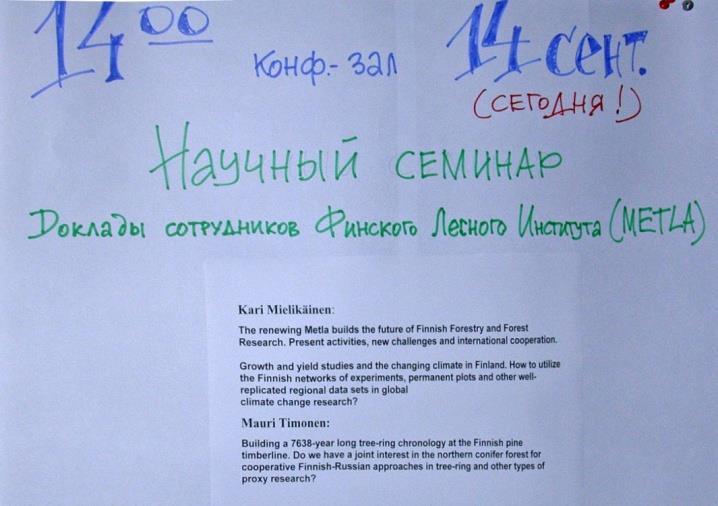 14 00 Конф.- зал 14 сент.
(СЕГОДНЯ!)
Научный семинар
Доклады сотрудников Финского Лесного Института (METLA)
Kari Mielikäinen:
The renewing Metla builds the future of Finnish Forestry and Forest
Research. Present activities, new challenges and international cooperation.
Growth and yield studies and the changing climate in Finland. How to utilize
the Finnish networks of experiments, permanent plots and other well-
replicated regional data sets in global
climate change research?
Mauri Timonen:
Building a 7638-year long tree-ring chronology at the Finnish pine
timberline. Do we have a joint interest in the northern conifer forest for
cooperative Finnish-Russian approaches in tree-ring and other types of
proxy research?